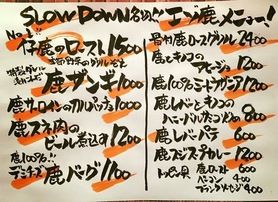 SLOW DOWN名物!! エゾ鹿メニュー!
No.1
仔鹿のロースト 1500
鹿ザンギ 1000
鹿サーロインのカルパッチョ 1000
鹿スネ肉の
ビール煮込み 1200
鹿100%!!
デミチーズ 鹿バーグ 1100
骨付鹿ロースグリル 2400
鹿ときのこの
アヒージョ 1200
鹿100%ミートラザニア 1200
鹿レバーともつの
800
鹿レバーパテ 600
鹿スジスープカレー 1200
トッピング 鹿ロースト 600
ベーコン 400
フランクソーセージ 400